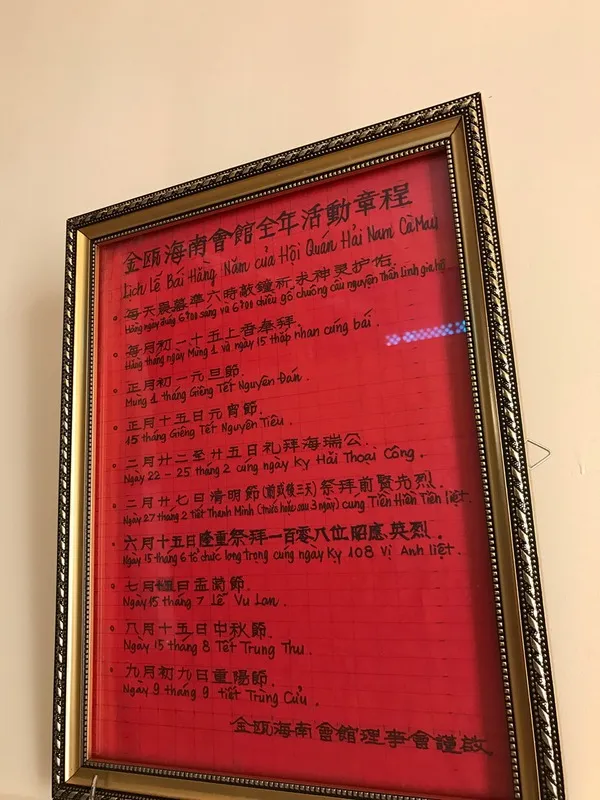 金甌海南會館全年活動章程
Lịch Lễ Bái Hằng Năm của Hội Quán Hải Nam Cà Mau
每天晨暮準六時敲鐘祈求神灵护佑.
Hằng ngày đúng 6g00 sáng và 6g00 chiều gõ chuông cầu nguyện Thần Linh gia hộ
每月初一十五上香奉拜.
Hằng tháng ngày Mùng 1 và ngày 15 thắp nhan cúng bái.
正月初一元旦節.
Mùng 1 tháng Giêng Tết Nguyên Đán.
正月十五日元宵節.
15 tháng Giêng Tết Nguyên Tiêu.
二月廿二至廿五日礼拜海瑞公.
Ngày 22 - 25 tháng 2 cúng ngày Kỵ Hải Thoại Công.
二月廿七日清明節(前或後三天)祭拜前賢先烈.
Ngày 27 tháng 2 tiết Thanh Minh (trước hoặc sau 3 ngày) cúng Tiền Hiền Tiên liệt.
六月十五日隆重祭拜一百零八位昭應英烈.
Ngày 15 tháng 6 tổ chức long trọng cúng ngày Kỵ 108 Vị Anh liệt.
七月日盂蘭節.
Ngày 15 tháng 7 Lễ Vu Lan.
八月十五日中秋節.
Ngày 15 tháng 8 Tết Trung Thu.
九月初九日重陽節.
Ngày 9 tháng 9 tiết Trùng Cửu.
金甌海南會館理事會謹啟